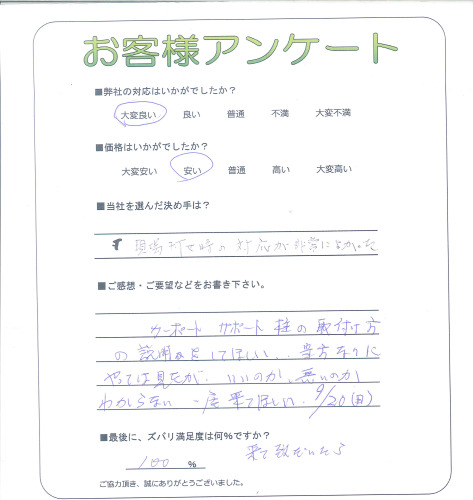 お客様アンケート
■弊社の対応はいかがでしたか?
大変良い 良い 普通 不満 大変不満
■価格はいかがでしたか?
大変安い 安い 普通 高い 大変高い
■当社を選んだ決め手は?
現場打せ時の対応が非常によかった
■ご感想・ご要望などをお書き下さい。
カーポート サポート柱の取付け方
の説明をしてほしい、当方なりに
やっては見たが、いいのか、悪いのか
わからない 一度来てほしい。9/20(日)
■最後に、ズバリ満足度は何%ですか?
来て頂いたら
100 %
ご協力頂き、誠にありがとうございました。